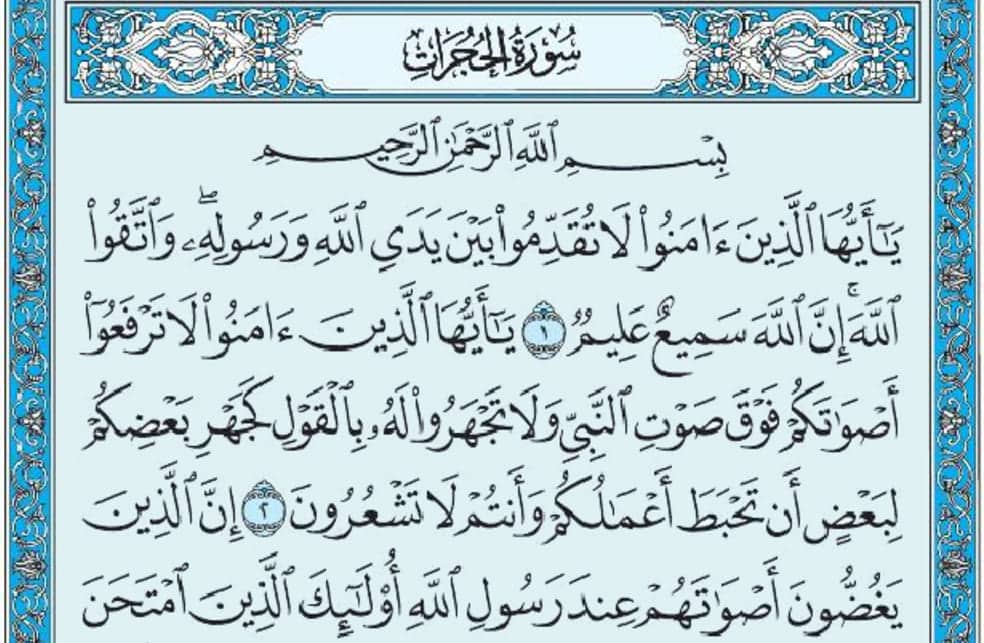 سُورَةُ الْحُجُرَاتِ
بِسْمِ ٱللَّهِ ٱلرَّحْمَٰنِ ٱلرَّحِيمِ
يَٰٓأَيُّهَا ٱلَّذِينَ ءَامَنُوا۟ لَا تُقَدِّمُوا۟ بَيْنَ يَدَىِ ٱللَّهِ وَرَسُولِهِۦ ۖ وَٱتَّقُوا۟
ٱللَّهَ ۚ إِنَّ ٱللَّهَ سَمِيعٌ عَلِيمٌ ١ يَٰٓأَيُّهَا ٱلَّذِينَ ءَامَنُوا۟ لَا تَرْفَعُوٓا۟
أَصْوَٰتَكُمْ فَوْقَ صَوْتِ ٱلنَّبِىِّ وَلَا تَجْهَرُوا۟ لَهُۥ بِٱلْقَوْلِ كَجَهْرِ بَعْضِكُمْ
لِبَعْضٍ أَن تَحْبَطَ أَعْمَٰلُكُمْ وَأَنتُمْ لَا تَشْعُرُونَ ٢ إِنَّ ٱلَّذِينَ
يَغُضُّونَ أَصْوَٰتَهُمْ عِندَ رَسُولِ ٱللَّهِ أُو۟لَٰٓئِكَ ٱلَّذِينَ ٱمْتَحَنَ